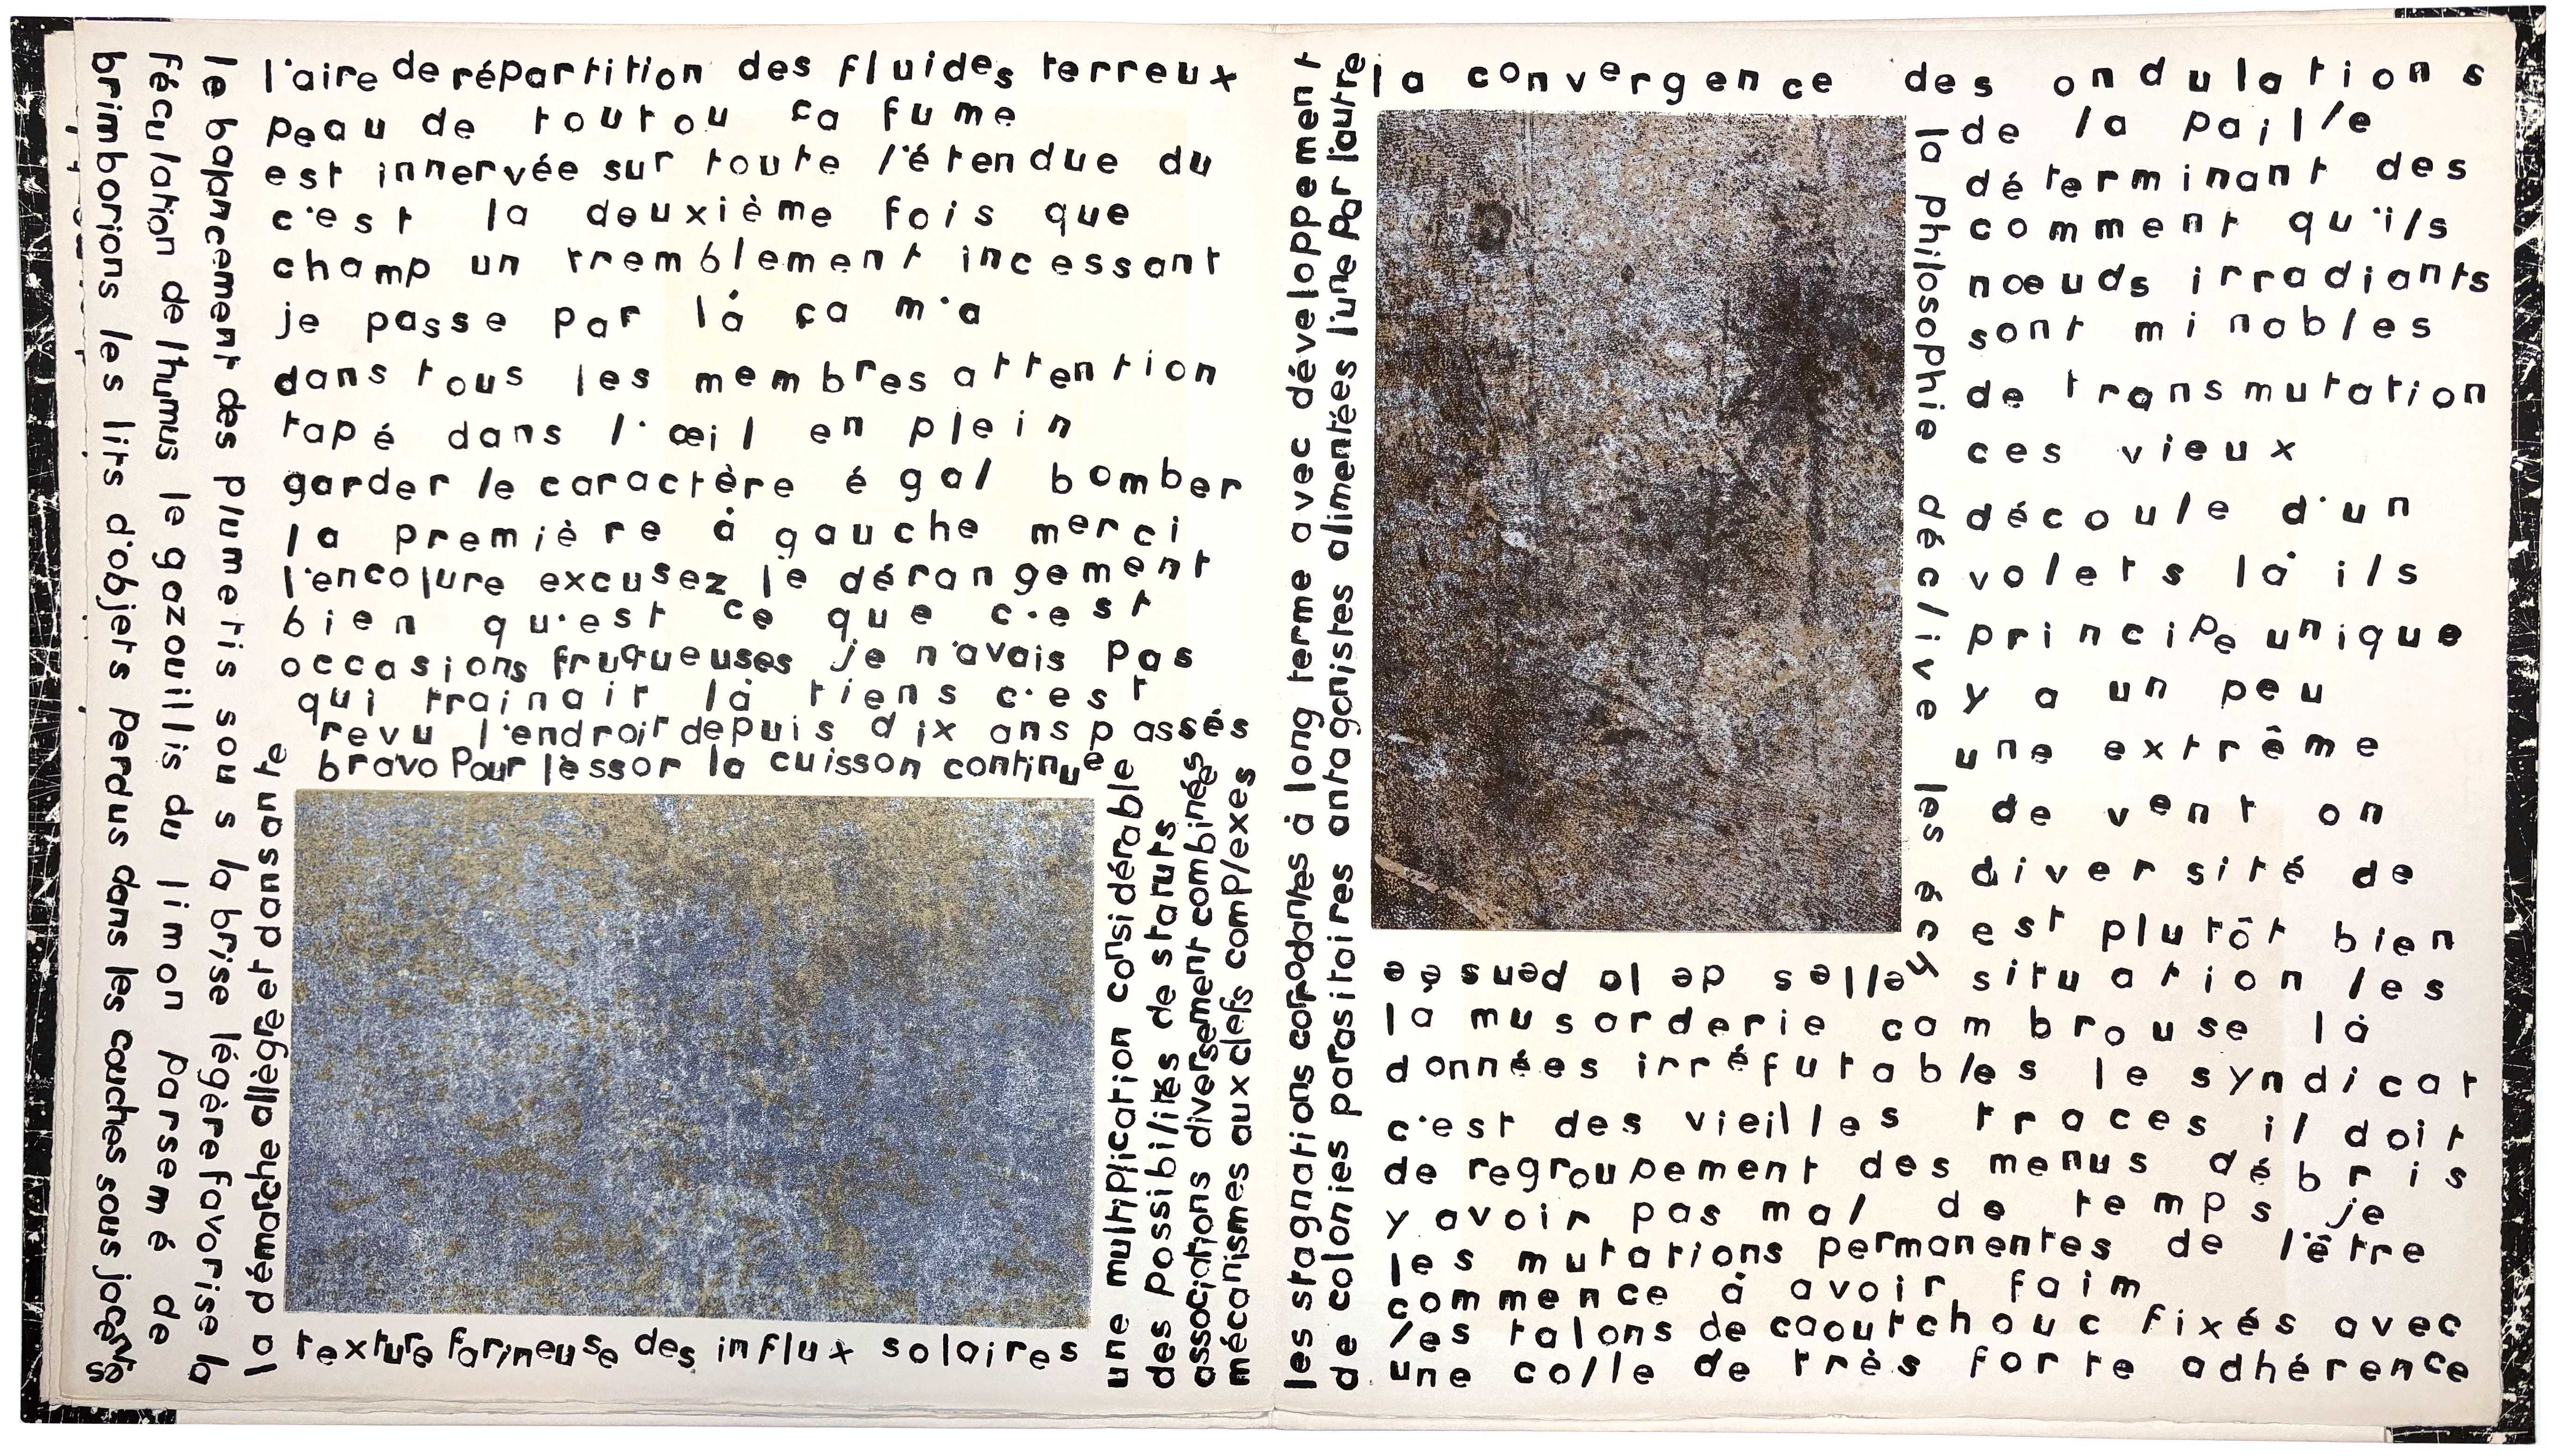 brimborions les lits d'objets perdus dans les couches sous jacentes
féculation de l'humus le gazouillis du limon parsemé de
le balancement des plumetis sous la brise légère favorise la
la démarche allègre et dansante
l'aire de répartition des fluides terreux
peau de toutou ça fume
est innervée sur toute l'étendue du
c'est la deuxième fois que
champ un tremblement incessant
je passe par là ça m'a
dans tous les membres attention
tapé dans l'œil en plein
garder le caractère égal bomber
la première à gauche merci
l'encolure excusez le dérangement
bien qu'est ce que c'est
occasions fruqueuses je n'avais pas
qui trainait là tiens c'est
revu l'endroit depuis dix ans passés
bravo pour l'essor la cuisson continue
texture farineuse des influx solaires
une multiplication considérable
des possibilités de statuts
associations diversement combinées
mécanismes aux clefs complexes
les stagnations corrodantes à long terme avec développement
de colonies parasitoires antagonistes alimentées l'une par l'autre
la convergence des ondulations
de la paille
déterminant des
comment qu'ils
nœuds irradiants
sont minables
de transmutation
ces vieux
découle d'un
volets là ils
principe unique
y a un peu
une extrême
de vent on
diversité de
est plutôt bien
situation les
la philosophie déclive les éch
elles de la pensée
la musarderie cambrouse là
données irréfutables le syndicat
c'est des vieilles traces il doit
de regroupement des menus débris
y avoir pas mal de temps je
les mutations permanentes de l'être
commence à avoir faim
les talons de caoutchouc fixés avec
une colle de très forte adhérence